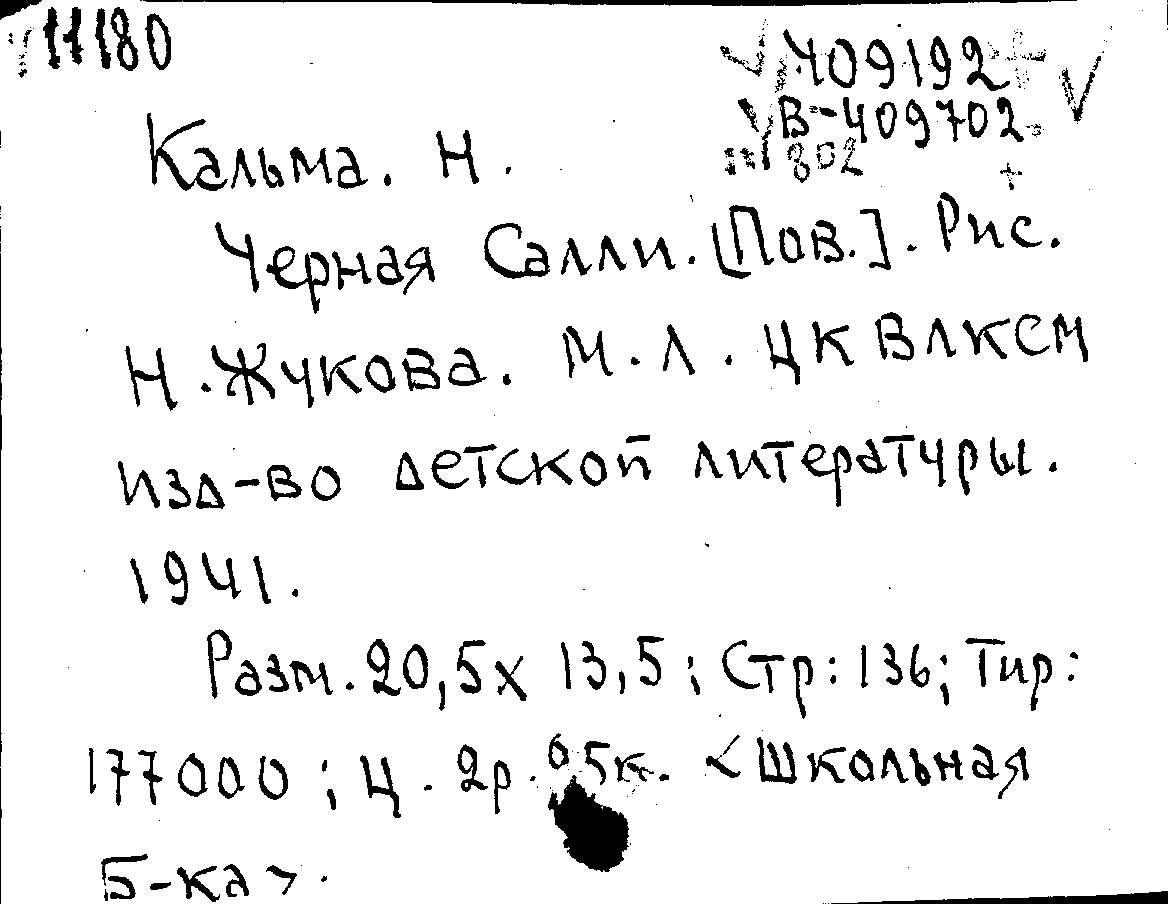 11180
409192
В-409702
802
Кальма. Н.
Черная Салли. [Пов.]. Рис.
Н. Жукова. М. Л. ЦК ВЛКСМ
изд-во детской литературы.
1941.
Разм. 20,5 х 13,5; Стр: 136; Тир:
177000; Ц. 2р. 05к. <Школьная
Б-ка>.